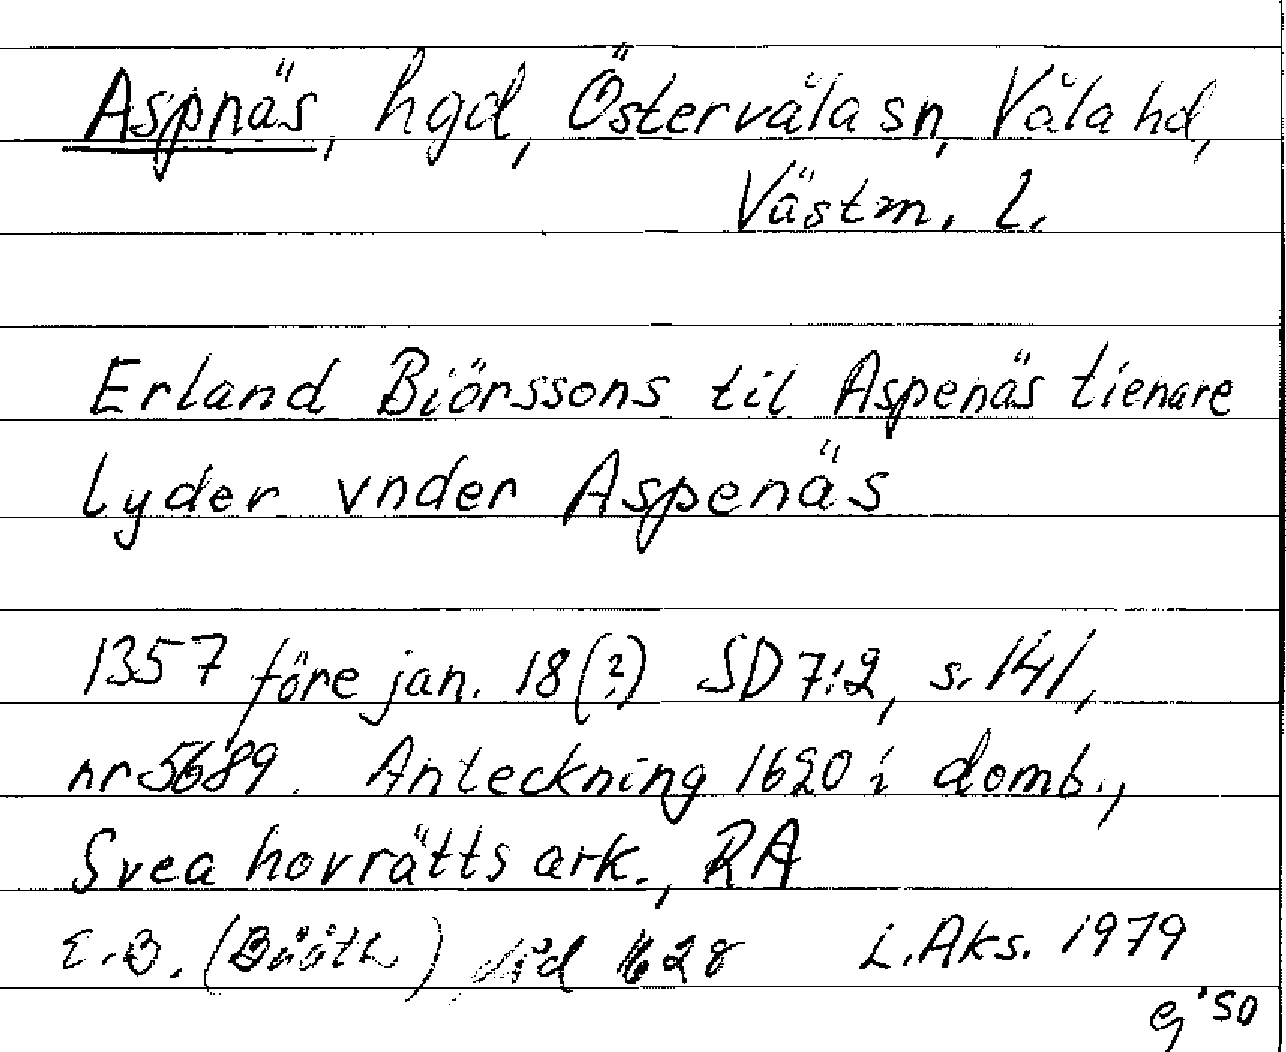 Aspnäs, hgd, Östervåla sn, Våla hd,
Västm. l.
Erland Biörssons til Aspenäs tienare
lyder vnder Aspenäs
1357 före jan. 18 (?) SD 7:2, s. 141,
nr 5689. Anteckning 1620 i domb.,
Svea hovrätts ark., RA
E.B. (Bååth) död 1628 L.Aks. 1979